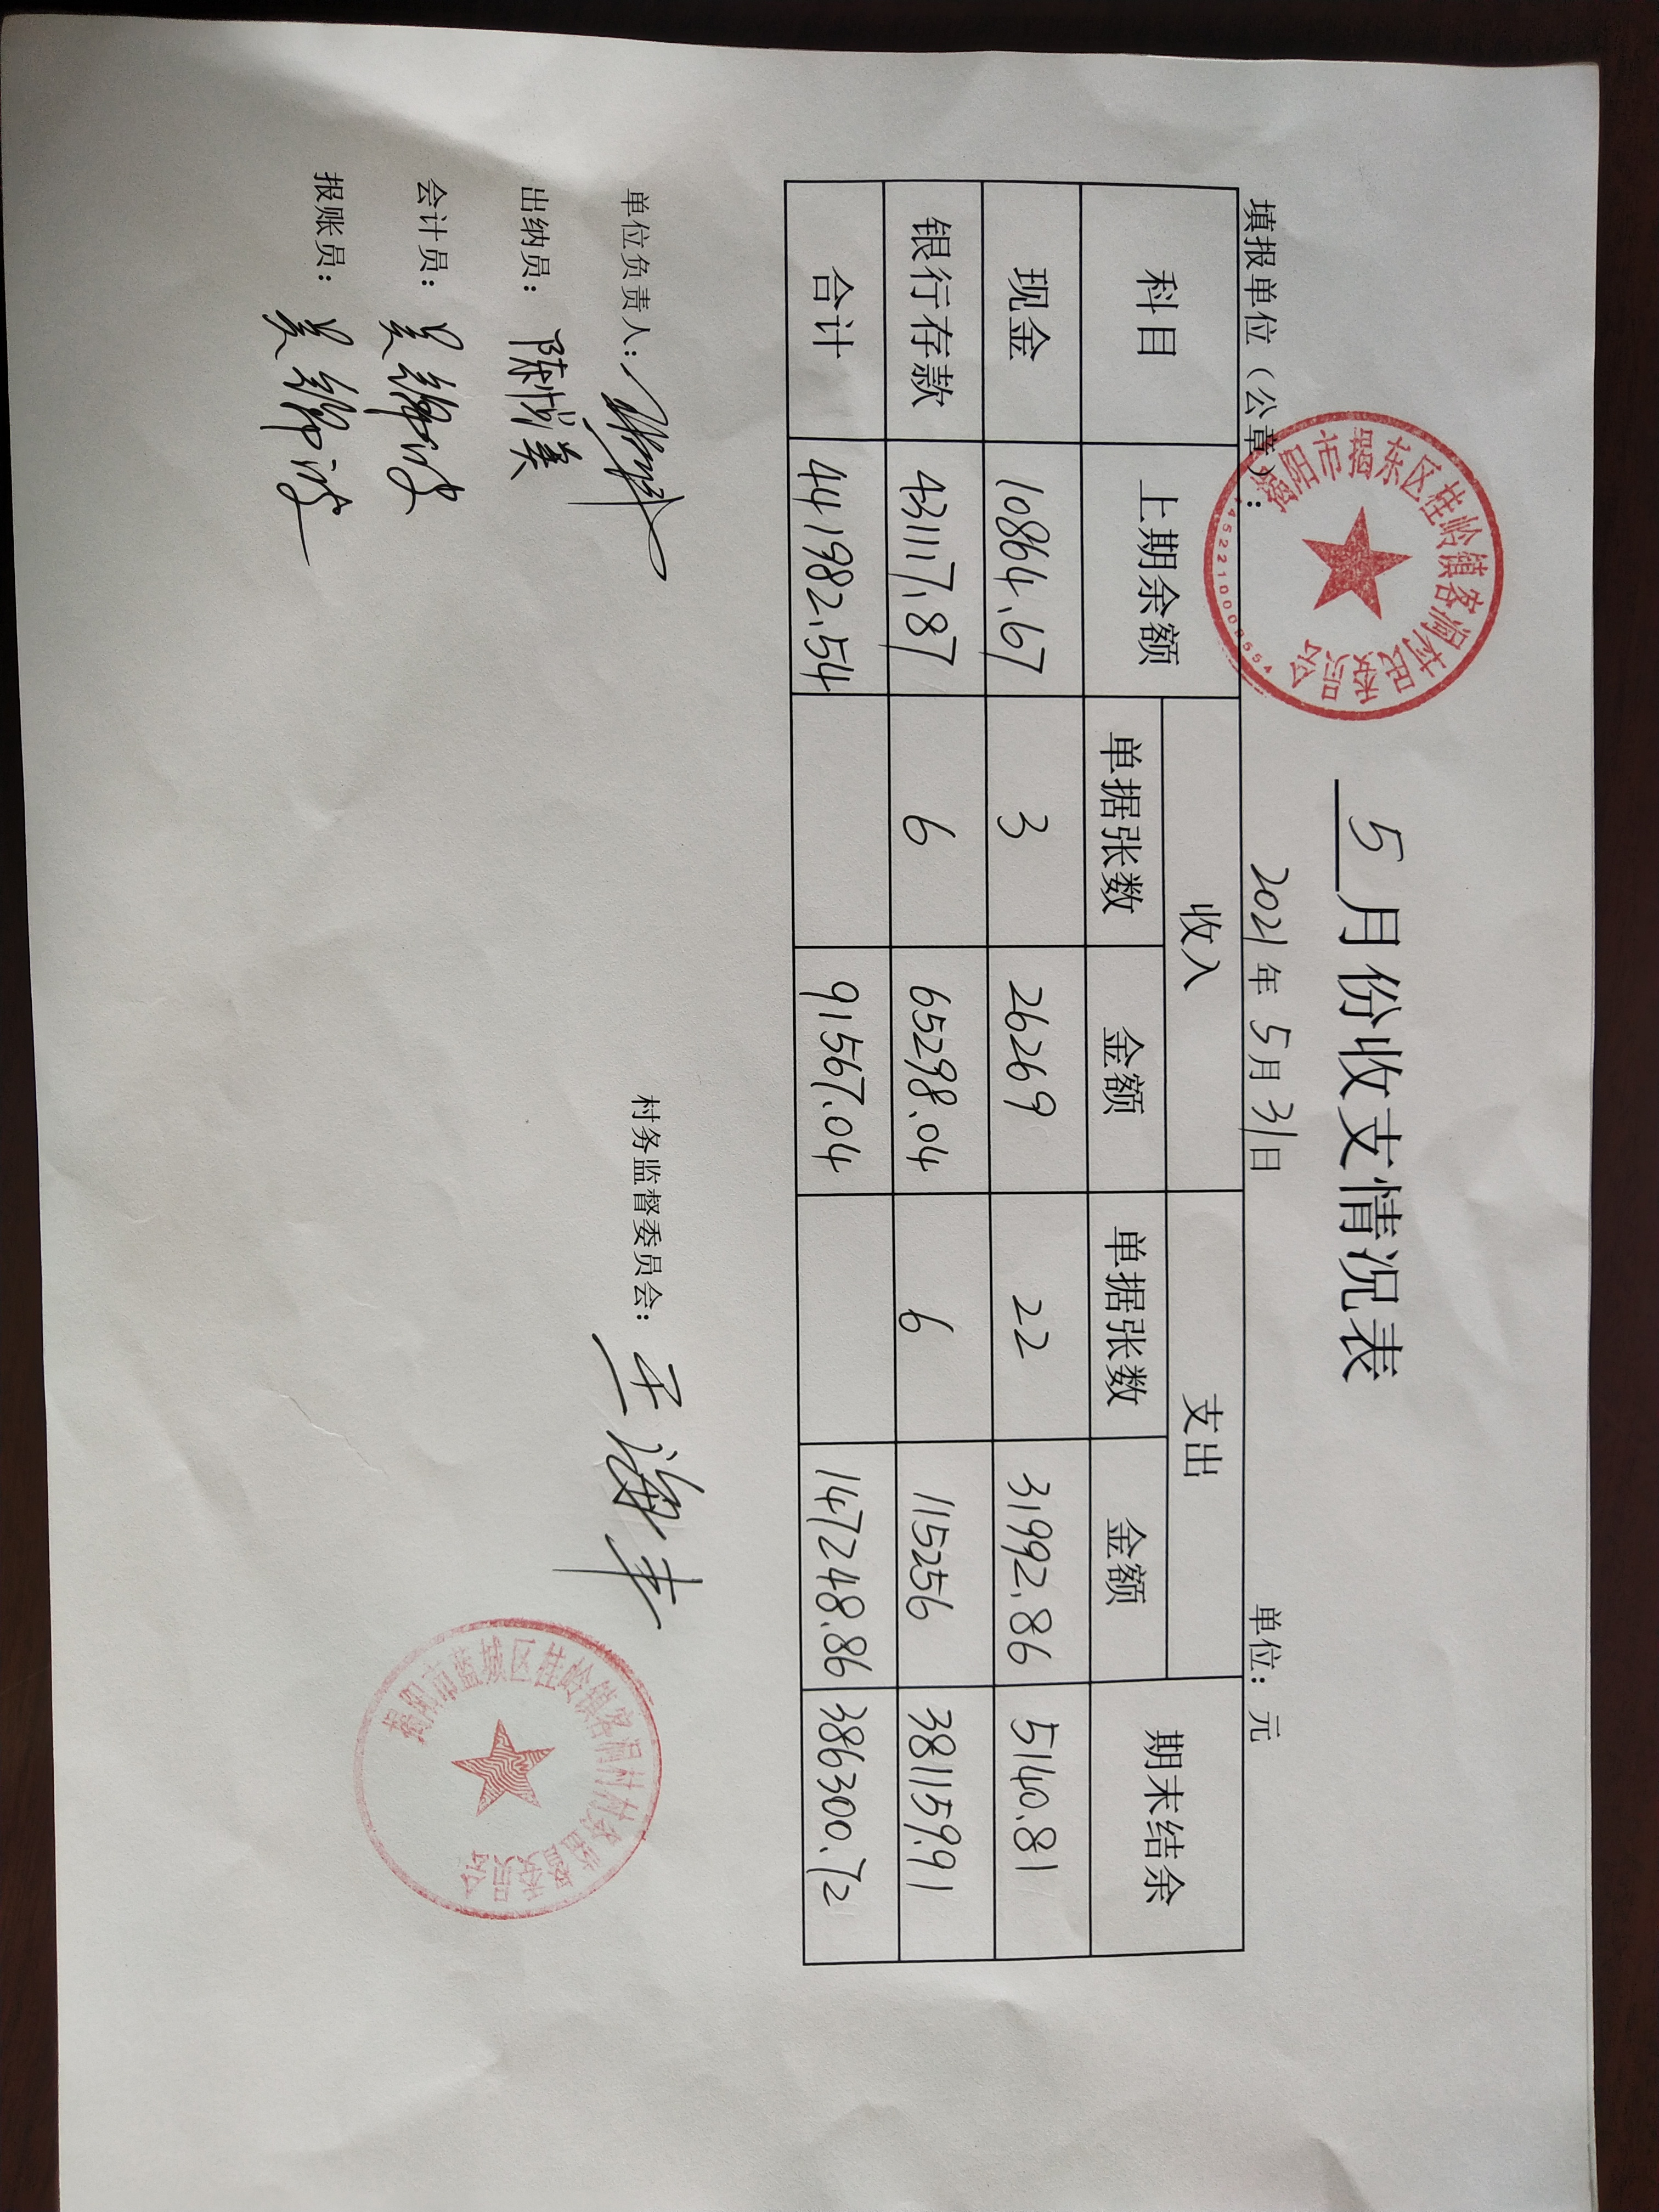 5月份收支情况表
填报单位（公章）：
2021年5月31日
单位：元
揭阳市揭东区桂岭镇客洞村民委员会
4452210009554
科目 上期余额 收入 支出 期末结余
单据张数 金额 单据张数 金额
现金 10864.67 3 26269 22 31992.86 5140.81
银行存款 431117.87 6 65298.04 6 115256 381159.91
合计 441982.54 91567.04 147248.86 386300.72
单位负责人：
村务监督委员会：
出纳员：陈
会计员：吴
报账员：吴
揭阳市蓝城区桂岭镇客洞村村务监督委员会